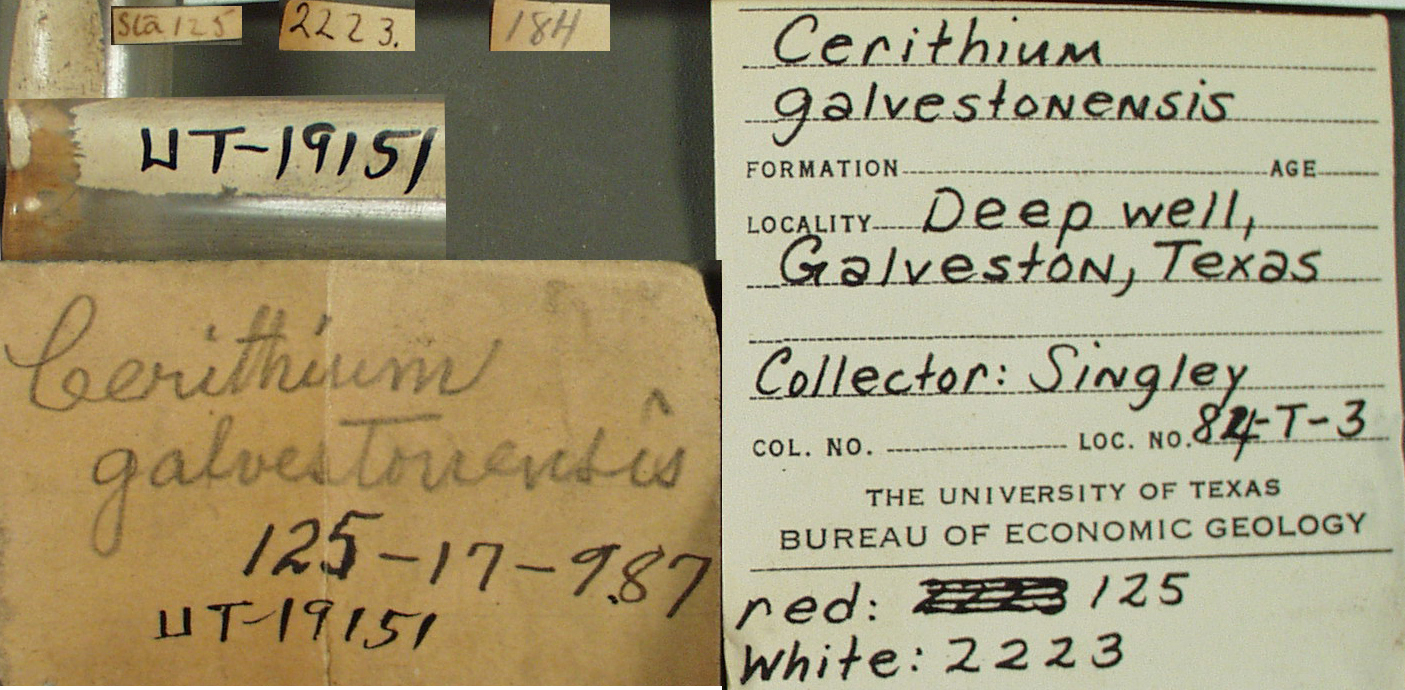 Sta 125
2223.
184
UT-19151
Cerithium
galvestonensis
125-17-9.87
UT-19151
Cerithium
galvestonensis
FORMATION AGE
LOCALITY Deep well,
Galveston, Texas
Collector: Singley
COL. NO. LOC. NO. 84-T-3
THE UNIVERSITY OF TEXAS
BUREAU OF ECONOMIC GEOLOGY
red: 2223 125
White: 2223